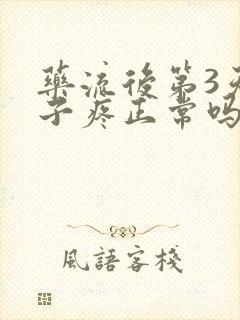 藥流後第3天
子疼正常嗎
風語客棧